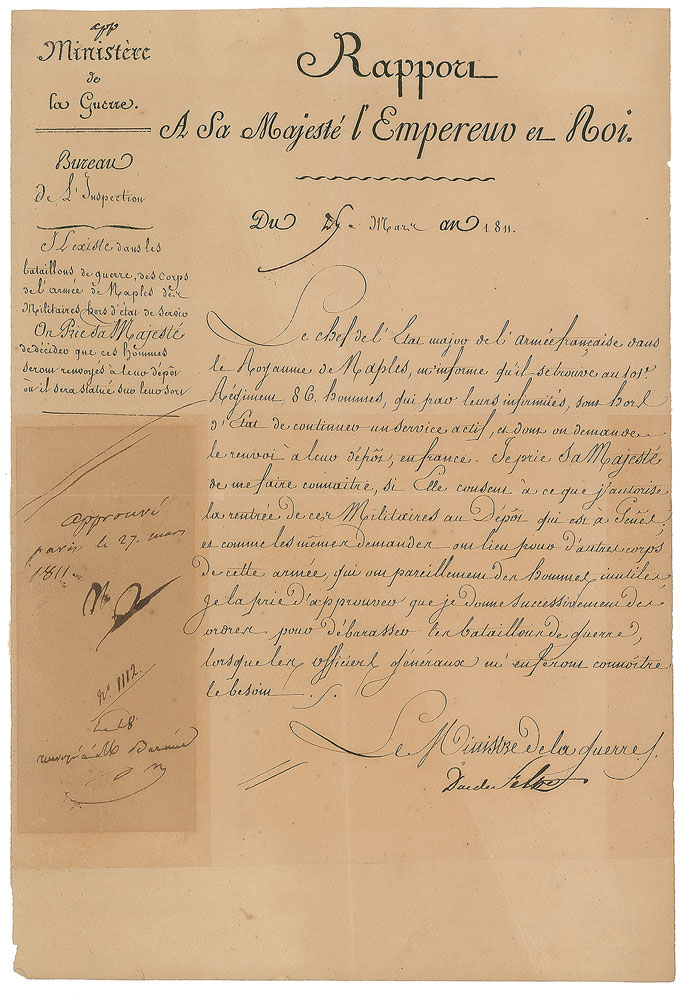 app
Ministère
de
la Guerre.
Bureau
de L'Inspection
Il existe dans les
bataillons de guerre, des corps
de l'armée de Naples des
Militaires, hors d'état de servir
On Prie Sa Majesté
de décider que ces hommes
seront renvoyés à leur dépôt
où il sera statué sur leur sort
Rapport
A Sa Majesté l'Empereur et Roi.
Du Mars an 1811.
Le chef de l'Etat major de l'armée française dans
le Royaume de Naples, m'informe qu'il se trouve au 101e
Régiment 86. hommes, qui par leurs infirmités, sont hors
d'Etat de continuer un service actif, et dont on demande
le renvoi à leur dépôt, en france. Je prie Sa Majesté
de me faire connaitre, si Elle consent à ce que j'autorise
la rentrée de ces Militaires au Dépôt qui est à Gênes,
et comme les mêmes demandes ont lieu pour d'autres corps
de cette armée, qui ont pareillement des hommes inutiles,
je la prie d'approuver que je donne successivement des
ordres pour débarasser les bataillons de guerre,
lorsque les officiers généraux m'en feront connoître
le besoin.
Le Ministre de la guerre
Duc de Feltre
approuvé
paris le 27. mars
1811
N
no 1112.
Le 28
renvoyé à M